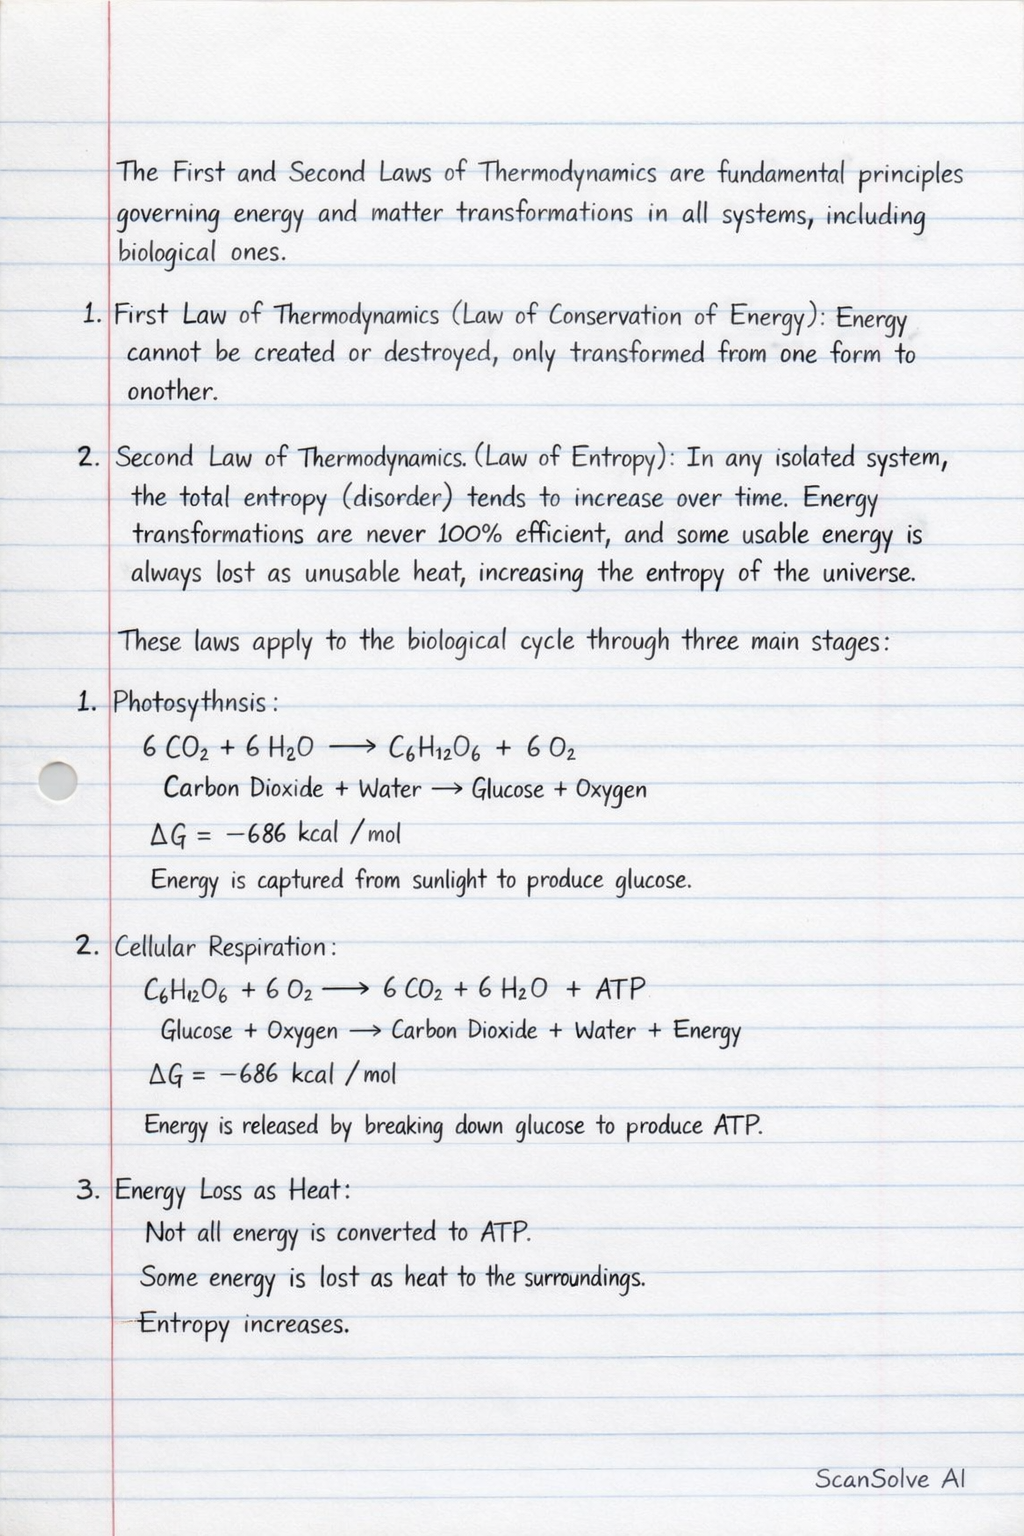 The First and Second Laws of Thermodynamics are fundamental principles
governing energy and matter transformations in all systems, including
biological ones.
1. First Law of Thermodynamics (Law of Conservation of Energy): Energy
cannot be created or destroyed, only transformed from one form to
onother.
2. Second Law of Thermodynamics. (Law of Entropy): In any isolated system,
the total entropy (disorder) tends to increase over time. Energy
transformations are never 100% efficient, and some usable energy is
always lost as unusable heat, increasing the entropy of the universe.
These laws apply to the biological cycle through three main stages:
1. Photosythnsis:
6 CO₂ + 6 H₂O ⟶ C₆H₁₂O₆ + 6 O₂
Carbon Dioxide + Water → Glucose + Oxygen
ΔG = −686 kcal /mol
Energy is captured from sunlight to produce glucose.
2. Cellular Respiration:
C₆H₁₂O₆ + 6 O₂ ⟶ 6 CO₂ + 6 H₂O + ATP
Glucose + Oxygen → Carbon Dioxide + Water + Energy
ΔG = −686 kcal /mol
Energy is released by breaking down glucose to produce ATP.
3. Energy Loss as Heat:
Not all energy is converted to ATP.
Some energy is lost as heat to the surroundings.
Entropy increases.
ScanSolve AI